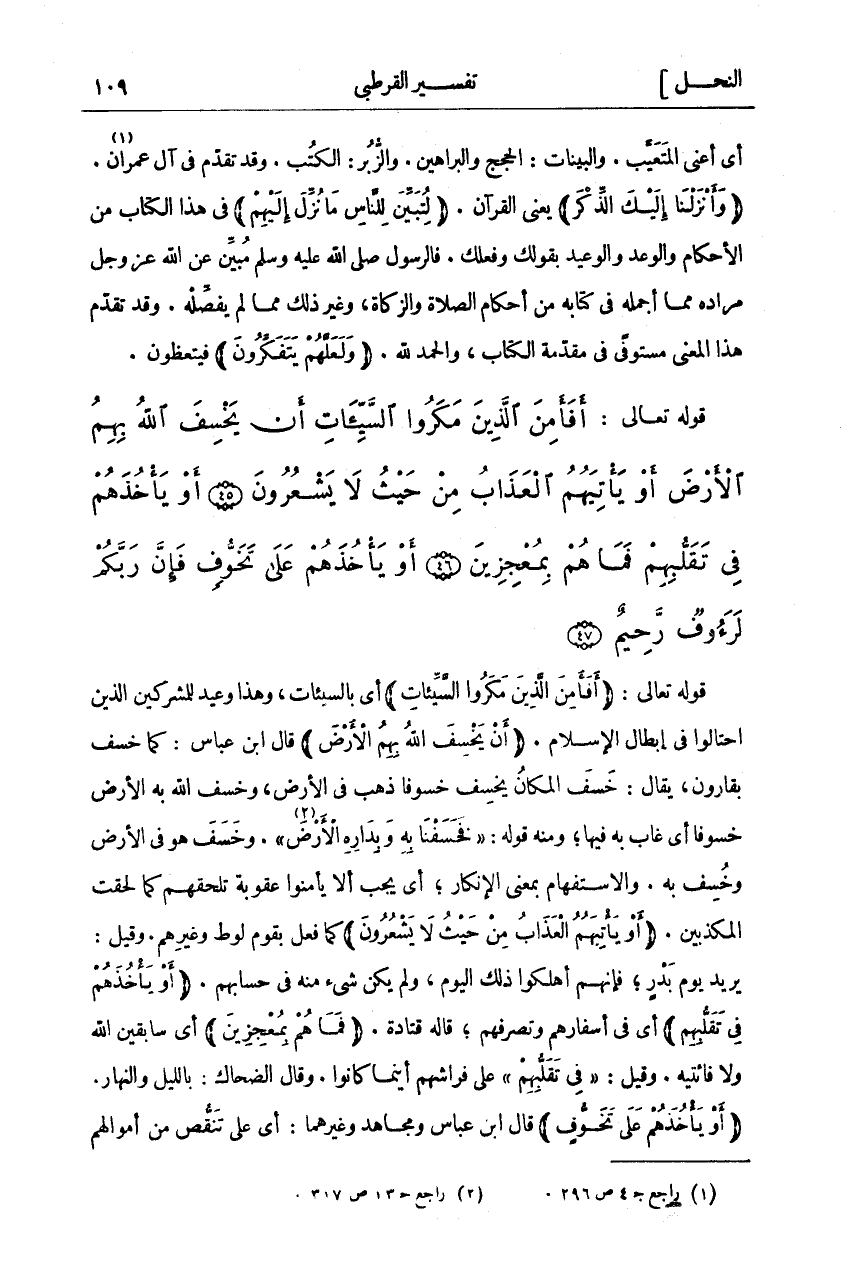 النحـــل ]	تفســـير القرطبى	١٠٩
أى أعنى المَتَعَيَّب . والبينات : الحجج والبراهين . والزُّبُر : الكتُب . وقد تقدّم فى آل عمران (١) .
﴿ وَأَنْزَلْنَا إِلَيْـكَ الذِّكْرَ ﴾ يعنى القرآن . ﴿ لِتُبَيِّنَ لِلنَّاسِ مَا نُزِّلَ إِلَيْهِمْ ﴾ فى هذا الكتاب من
الأحكام والوعد والوعيد بقولك وفعلك . فالرسول صلى الله عليه وسلم مُبيِّن عن الله عز وجل
مراده ممـا أجمله فى كتابه من أحكام الصلاة والزكاة ، وغير ذلك ممـا لم يفصِّلْه . وقد تقدّم
هذا المعنى مستوفًى فى مقدّمة الكتاب ، والحمد لله . ﴿ وَلَعَلَّهُمْ يَتَفَكَّرُونَ ﴾ فيتعظون .
قوله تعـالى : أَفَأَمِنَ ٱلَّذِينَ مَكَرُوا ٱلسَّيِّئَاتِ أَن يَخْسِفَ ٱللهُ بِهِمُ
ٱلْأَرْضَ أَوْ يَأْتِيَهُمُ ٱلْعَذَابُ مِنْ حَيْثُ لَا يَشْعُرُونَ ﴿٤٥﴾ أَوْ يَأْخُذَهُمْ
فِى تَقَلُّبِهِمْ فَمَـا هُم بِمُعْجِزِينَ ﴿٤٦﴾ أَوْ يَأْخُذَهُمْ عَلَى تَخَوُّفٍ فَإِنَّ رَبَّكُمْ
لَرَءُوفٌ رَّحِيمٌ ﴿٤٧﴾
قوله تعالى : ﴿ أَفَأَمِنَ الَّذِينَ مَكَرُوا السَّيِّئَاتِ ﴾ أى بالسيئات ، وهذا وعيد للمشركين الذين
احتالوا فى إبطال الإســلام . ﴿ أَنْ يَخْسِفَ اللهُ بِهِمُ الْأَرْضَ ﴾ قال ابن عباس : كما خسف
بقارون ، يقال : خَسَف المكانُ يخسِف خسوفا ذهب فى الأرض ، وخسف الله به الأرض
خسوفا أى غاب به فيها ؛ ومنه قوله : « فَخَسَفْنَا بِهِ وَبِدَارِهِ الْأَرْضَ (٢) » . وخَسَفَ هو فى الأرض
وخُسِف به . والاسـتفهام بمعنى الإنكار ؛ أى يجب ألا يأمنوا عقوبة تلحقهـم كما لحقت
المكذبين . ﴿ أَوْ يَأْتِيَهُمُ الْعَذَابُ مِنْ حَيْثُ لَا يَشْعُرُونَ ﴾ كما فعل بقوم لوط وغيرهم . وقيل :
يريد يوم بَدْرٍ ؛ فإنهـم أهلكوا ذلك اليوم ، ولم يكن شىء منه فى حسابهم . ﴿ أَوْ يَأْخُذَهُمْ
فِى تَقَلُّبِهِم ﴾ أى فى أسفارهم وتصرفهم ؛ قاله قتادة . ﴿ فَمَـا هُمْ بِمُعْجِزِينَ ﴾ أى سابقين الله
ولا فائتيه . وقيل : « فِى تَقَلُّبِهِمْ » على فراشهم أينمـا كانوا . وقال الضحاك : بالليل والنهار .
﴿ أَوْ يَأْخُذَهُمْ عَلَى تَخَـوُّفٍ ﴾ قال ابن عباس ومجاهد وغيرهما : أى على تنَقُّص من أموالهم
(١) راجع جـ ٤ ص ٢٩٦ .	(٢) راجع جـ ١٣ ص ٣١٧ .